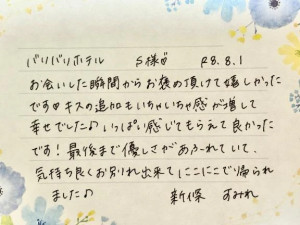 バリバリホテル S様♂ R8.8.1
お会いした瞬間からお褒め頂けて嬉しかった
です♡キスの追加もいちゃいちゃ感が増して
幸せでした♪いっぱい感じてもらえて良かった
です!最後まで優しさがあふれていて、
気持ち良くお別れ出来てにこにこで帰られ
ました♪ 新保 すみれ